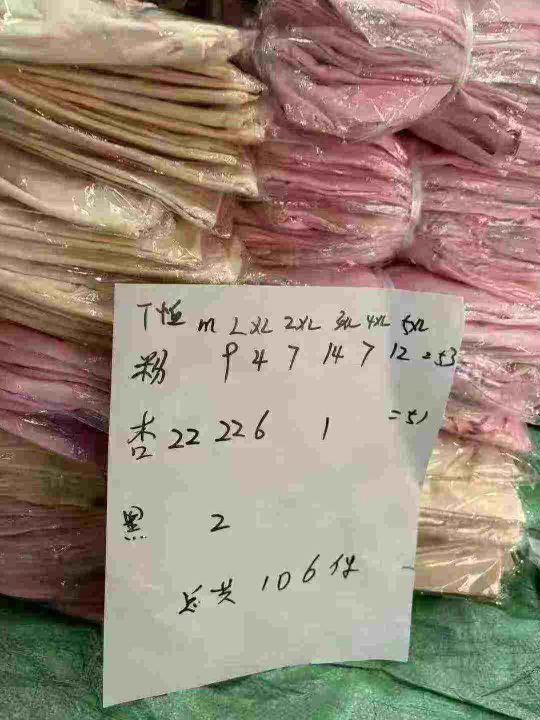 T恒 M L XL 2XL 3XL 4XL 5XL
粉 9 4 7 14 7 12 = 53
杏 22 22 6 1 = 51
黑 2
总共 106件